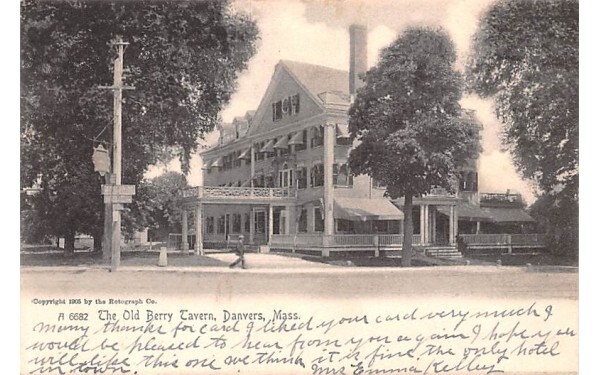 Copyright 1905 by the Rotograph Co.
A 6682 The Old Berry Tavern, Danvers, Mass.
Many thanks for card I liked your card very much I
would be pleased to hear from you again I hope you
will like this one we think it is fine, the only hotel
in town. Mrs Emma Kelley